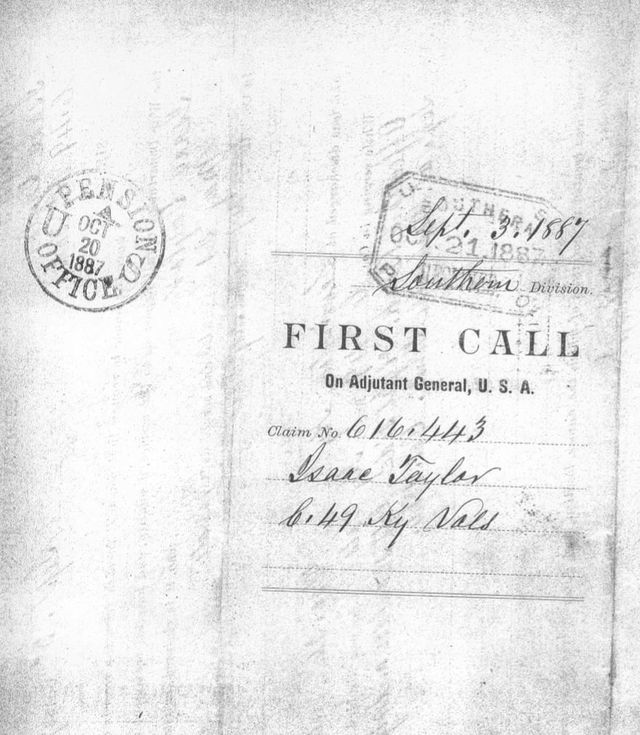 U.S. PENSION OFFICE
A
OCT
20
1887
SOUTHERN
OCT 21 1887
Sept. 3. 1887
Southern Division.
FIRST CALL
On Adjutant General, U. S. A.
Claim No. 616.443
Isaac Taylor
C. 49 Ky Vols